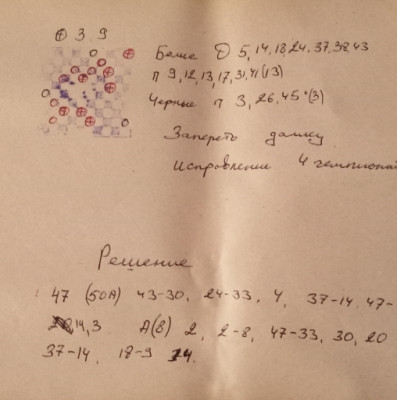 ⊕ 3 9
Белые D 5, 14, 18, 24, 37, 38, 43
п 9, 12, 13, 17, 31, 41 (13)
Черные п 3, 26, 45 * (3)
Запереть дамку
Исправление 4 чемпионат
Решение
47 (50A) 43-30, 24-33, 4, 37-14, 47-
14, 3 A(8) 2, 2-8, 47-33, 30, 20
37-14, 18-9 24.